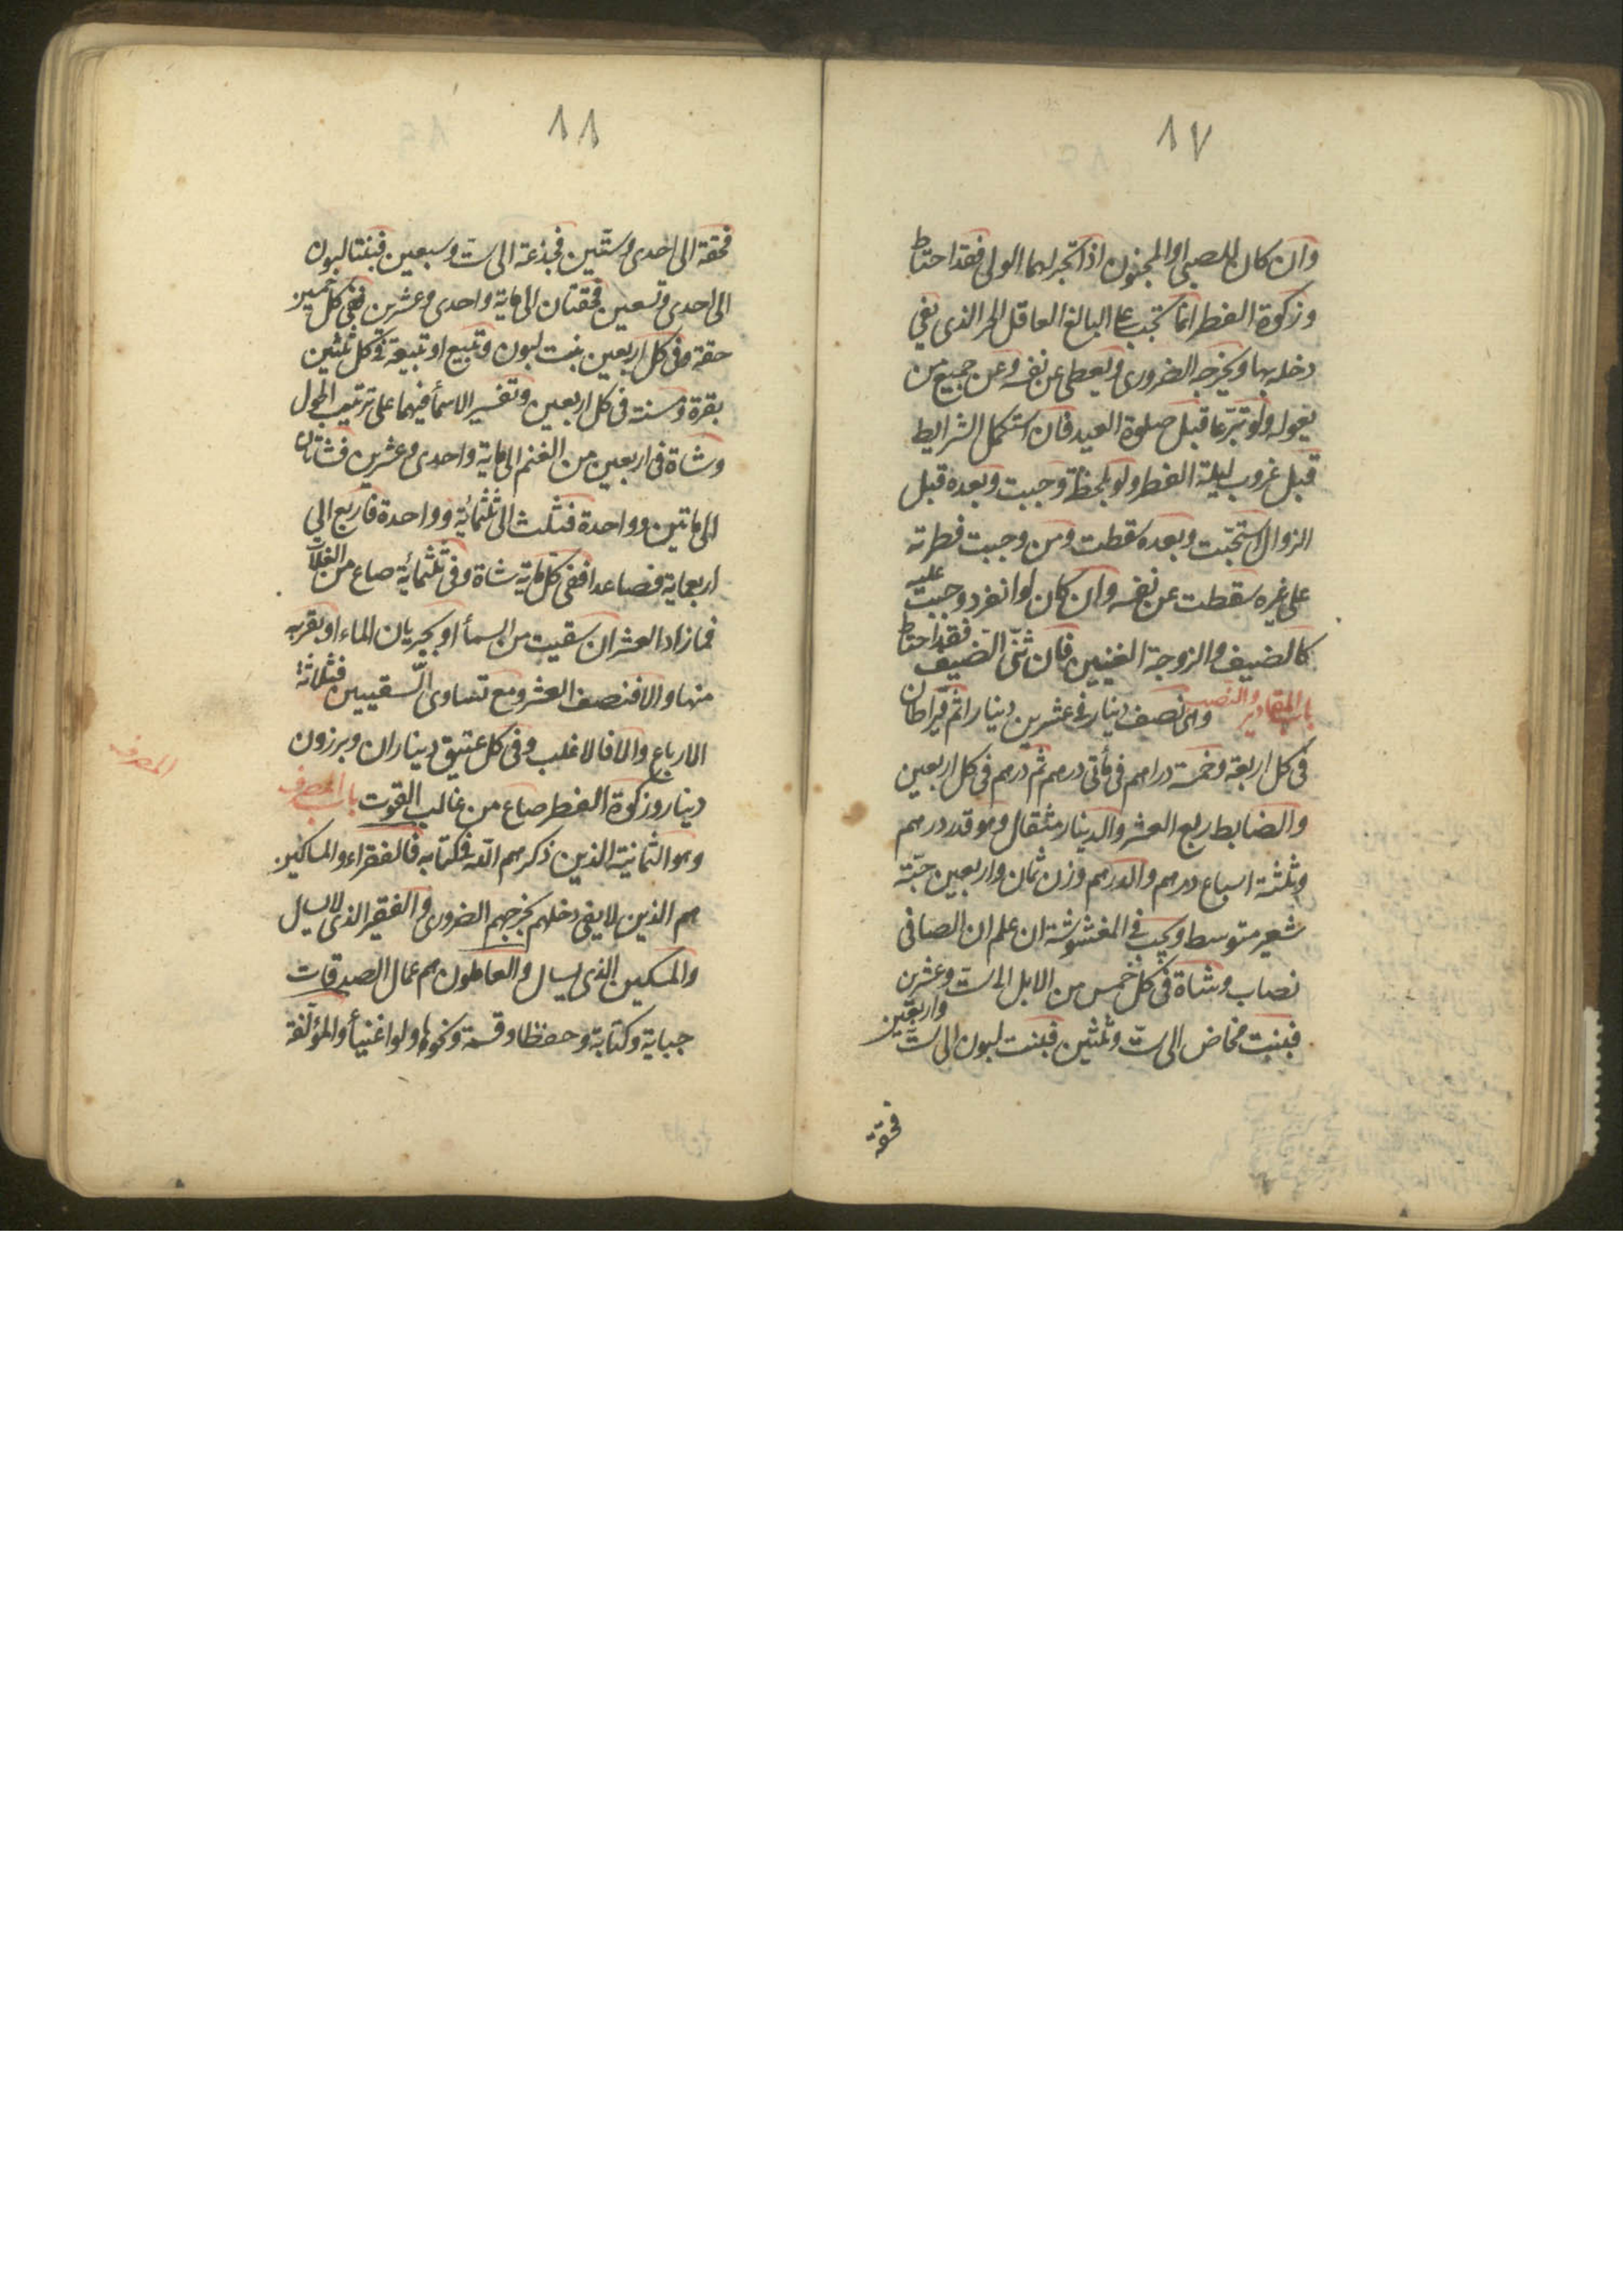 ١٧
وان كان للصبى او المجنون اذا اتّجر لهما الولى فقد احتاط
وزكوة الفطر انما تجب على البالغ العاقل الحر الذى يفى
دخله بها وبخرجه الضرورى ويعطى عن نفسه وعن جميع من
يعوله ولو تبرّعا قبل صلوة العيد فان استكمل الشرايط
قبل غروب ليلة الفطر ولو بلحظة وجبت وبعده قبل
الزوال استحبّت وبعده سقطت ومن وجبت فطرته
على غيره سقطت عن نفسه وان كان لو انفرد وجبت عليه
كالضيف والزوجة الغنيين فان ثنّى الضيف فقد احتاط
باب المقادير والنصب وهى نصف دينار فى عشرين دينارا ثم قيراطان
فى كل اربعة وخمسة دراهم فى مأتى درهم ثم درهم فى كل اربعين
والضابط ربع العشر والدينار مثقال وهو قدر درهم
وثلثة اسباع درهم والدرهم وزن ثمان واربعين حبّة
شعير متوسط ويجب فى المغشوشة ان علم ان الصافى
نصاب وشاة فى كل خمس من الابل الى ست وعشرين
فبنت مخاض الى ستّ وثلثين فبنت لبون الى ستّ واربعين
فحقة
١٨
فحقة الى احدى وستّين فجذعة الى ست وسبعين فبنتا لبون
الى احدى وتسعين فحقتان الى ماية واحدى وعشرين ففى كل خمسين
حقة وفى كل اربعين بنت لبون وتبيع او تبيعة فى كل ثلثين
بقرة ومسنة فى كل اربعين وتفسير الاسمأ فيهما على ترتيب الحول
وشاة فى اربعين من الغنم الى ماية واحدى وعشرين فشاتان
الى ماتين وواحدة فثلث الى ثلثمائة وواحدة فاربع الى
اربعماية فصاعدا ففى كل ماية شاة وفى ثلثمائة صاع من الغلات
فمازاد العشر ان سقيت من السمأ او بجريان الماء او بقربه
منها والا فنصف العشر ومع تساوى السّقيين فثلاثة
الارباع والا فالاغلب وفى كل عتيق ديناران وبرزون
دينار وزكوة الفطر صاع من غالب القوت باب المصرف
المصرف
وهو الثمانية الذين ذكرهم اللّه فى كتابه فالفقراء والمساكين
هم الذين لا يفى دخلهم بخرجهم الضرورى والفقير الذى لا يسال
والمسكين الذى يسال والعاملون هم عمال الصدقات
جباية وكتابة وحفظا وقسمة ونحوها ولو اغنيأ والمؤلّفة